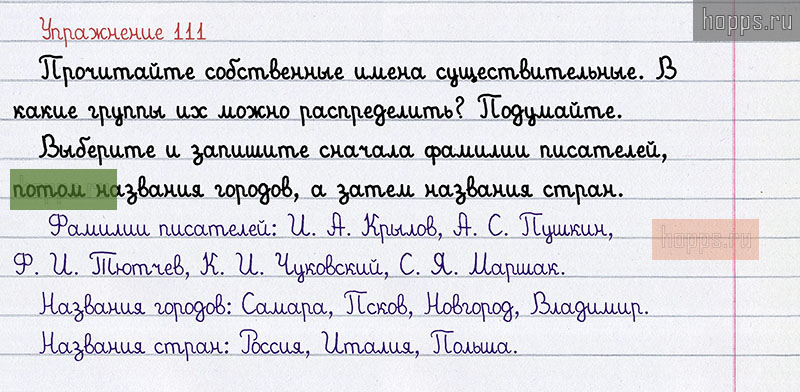 hopps.ru
Упражнение 111
Прочитайте собственные имена существительные. В
какие группы их можно распределить? Подумайте.
Выберите и запишите сначала фамилии писателей,
потом названия городов, а затем названия стран.
Фамилии писателей: И. А. Крылов, А. С. Пушкин,
hopps.ru
Ф. И. Тютчев, К. И. Чуковский, С. Я. Маршак.
Названия городов: Самара, Псков, Новгород, Владимир.
Названия стран: Россия, Италия, Польша.